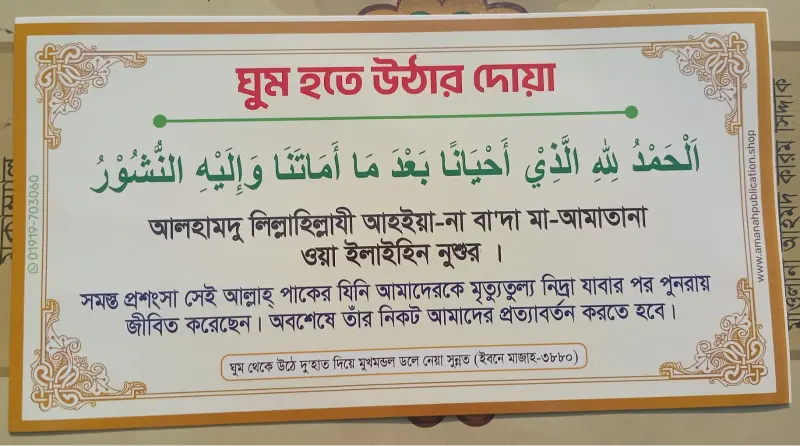 ঘুম হতে উঠার দোয়া
اَلْحَمْدُ لِلّٰهِ الَّذِيْ أَحْيَانًا بَعْدَ مَا أَمَاتَنَا وَإِلَيْهِ النُّشُوْرُ
আলহামদু লিল্লাহিল্লাযী আহইয়া-না বা'দা মা-আমাতানা
ওয়া ইলাইহিন নুশুর ।
সমস্ত প্রশংসা সেই আল্লাহ্ পাকের যিনি আমাদেরকে মৃত্যুতুল্য নিদ্রা যাবার পর পুনরায়
জীবিত করেছেন। অবশেষে তাঁর নিকট আমাদের প্রত্যাবর্তন করতে হবে।
ঘুম থেকে উঠে দু'হাত দিয়ে মুখমন্ডল ডলে নেয়া সুন্নত (ইবনে মাজাহ-৩৮৮০)
01919-703060
www.amanahpublication.shop
মাওলানা আহমদ কারম সিদ্দীক